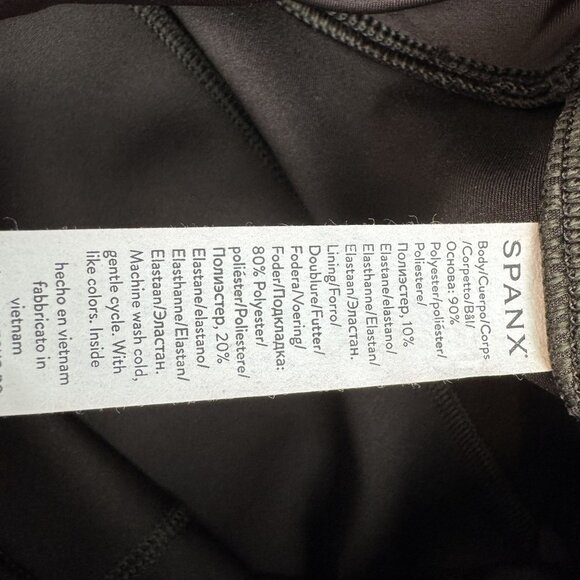 SPANX
Body/Cuerpo/Corps
/Corpetto/Bål/
Основа: 90%
Polyester/poliéster/
Poliestere/
Полиэстер, 10%
Elastane/elastano/
Elasthanne/Elastan/
Elastaan/Эластан.
Lining/Forro/
Doublure/Futter/
Fodera/Voering/
Foder/Подкладка:
80% Polyester/
poliéster/Poliestere/
Полиэстер, 20%
Elastane/elastano/
Elasthanne/Elastan/
Elastaan/Эластан.
Machine wash cold,
gentle cycle. With
like colors. Inside
hecho en vietnam
fabbricato in
vietnam